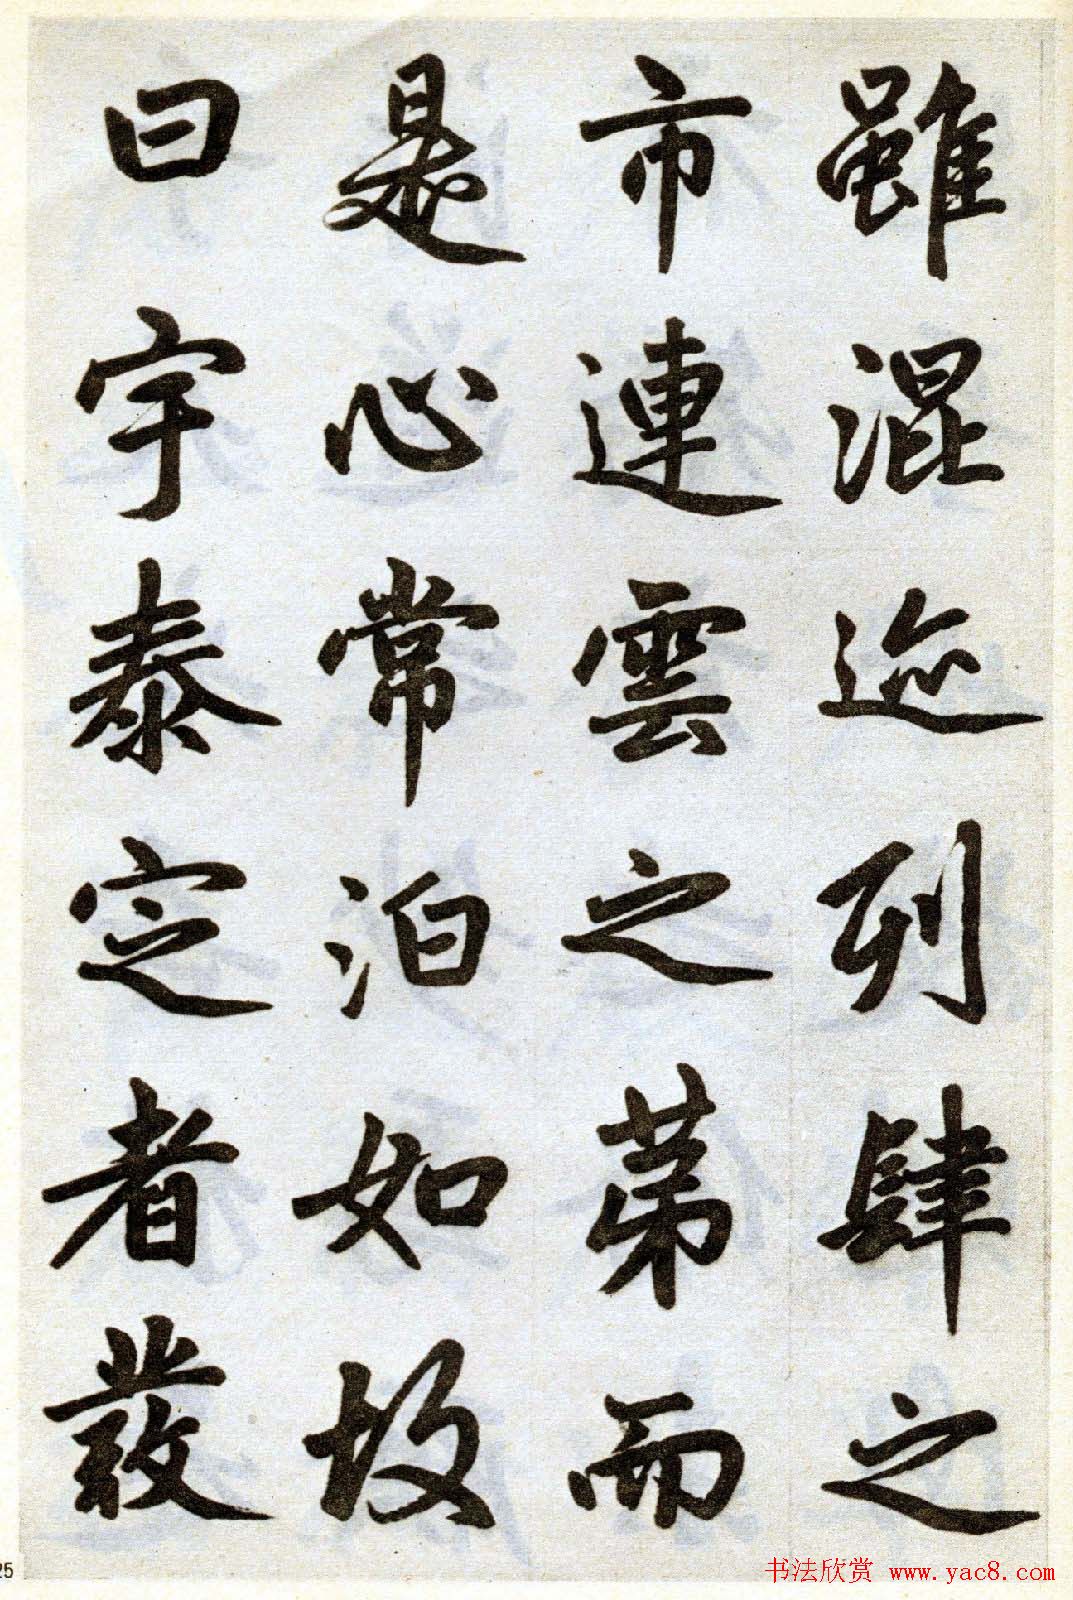 雖混迹列肆之
市連雲之第而
是心常泊如故
曰宇泰定者發
25
书法欣赏 www.yac8.com